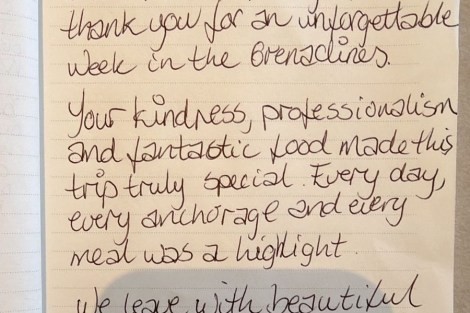 thank you for an unforgettable
week in the Grenadines.
Your kindness, professionalism
and fantastic food made this
trip truly special. Every day,
every anchorage and every
meal was a highlight.
We leave with beautiful